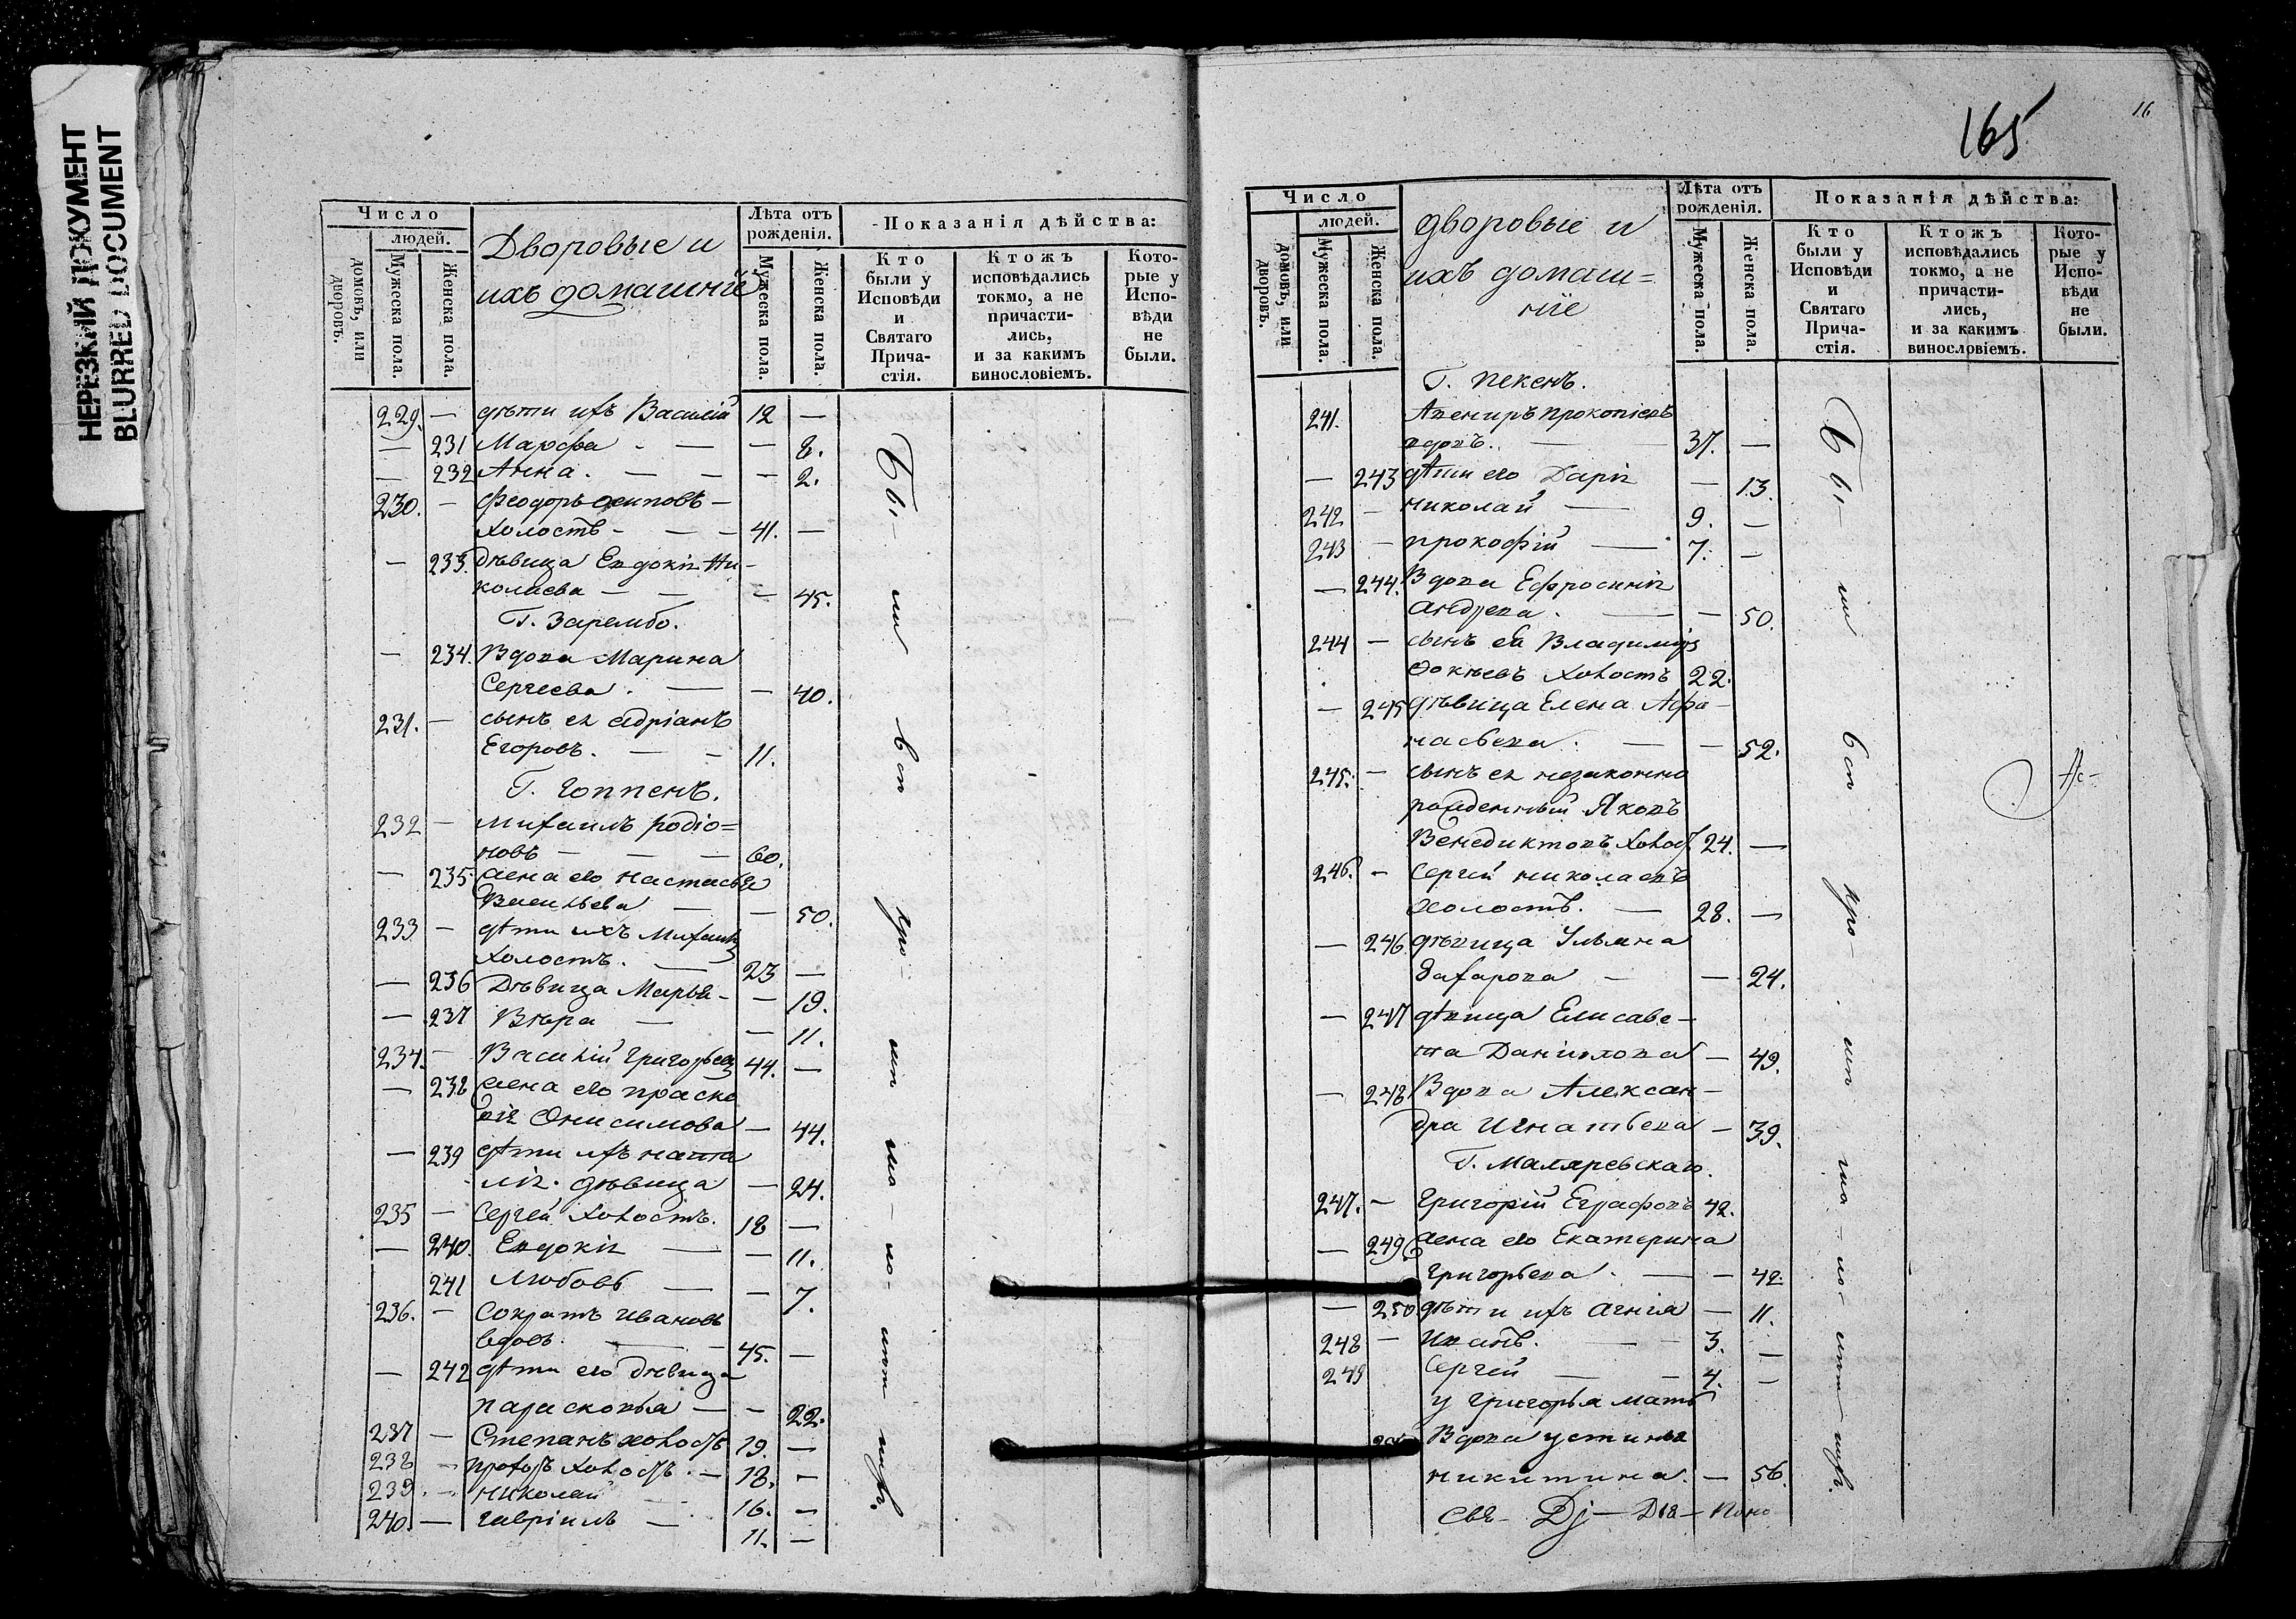 НЕРЕЗКИЙ ДОКУМЕНТ
BLURRED DOCUMENT
Число
людей.
домовъ, или дворовъ.
Мужеска пола.
Женска пола.
Дворовые и
ихъ домашніе
Лѣта отъ рожденія.
Мужеска пола.
Женска пола.
Показанія дѣйства:
Кто были у Исповѣди и Святаго Причастія.
Ктожъ исповѣдались токмо, а не причастились, и за какимъ винословіемъ.
Которые у Исповѣди не были.
229. — дѣти ихъ Василій 12 —
— 231 Марфа — — 8.
— 232 Анна. — — — 2.
230. — Феодоръ Осиповъ —
холостъ — — — 41. —
— 233. Дѣвица Евдокія Ни-
колаева — — — 45.
Г. Зарембо.
— 234. Вдова Марина
Сергеева. — — 40.
231. — сынъ ея Адріанъ
Егоровъ. — — 11.
Г. Гоппенъ.
232 — Михаилъ Родіо=
новъ — — — 60.
— 235. жена его Настасья
Васильева — — 50.
233 — дѣти ихъ Михаилъ
холостъ. — 23 —
— 236 Дѣвица Марья — — 19.
— 237 Вѣра — — 11.
234. — Василій Григорьевъ 44. —
— 238 жена его Праско
вія Онисимова — 44.
— 239 дѣти ихъ Ната
лія. дѣвица — 24.
235 — Сергей холостъ. 18 —
— 240. Евдокія — — 11.
241 Любовь — — 7.
236. — Сократъ Ивановъ
вдовъ. — — 45. —
— 242 дѣти его дѣвица
Парасковья — — 22.
237 — Степанъ холостъ 19. —
238 — Прохоръ холостъ. — 18. —
239. — Николай — 16. —
240. — Гавріилъ — 11. —
Бы- ли въ ис по- вѣ
165
16
Число
людей.
домовъ, или дворовъ.
Мужеска пола.
Женска пола.
дворовые и
ихъ домаш=
ніе
Лѣта отъ рожденія.
Мужеска пола.
Женска пола.
Показанія дѣйства:
Кто были у Исповѣди и Святаго Причастія.
Ктожъ исповѣдались токмо, а не причастились, и за какимъ винословіемъ.
Которые у Исповѣди не были.
Г. Пекенъ.
241. Авениръ Прокопіевъ
вдовъ. — — 37. —
— 243 дѣти его Дарія — 13.
242 — Николай — 9. —
243 — Прокофій — 7. —
— 244. Вдова Ефросинія
Андрева. — — 50.
244 — сынъ ея Владиміръ
Фокѣевъ холостъ 22.
— 245 дѣвица Елена Афа-
насьева. — — 52.
245. — сынъ ея незаконно
рожденный Яковъ
Венедиктовъ холос. 24. —
246. — Сергей Николаевъ
холостъ. — 28. —
— 246 дѣвица Ульяна
Захарова — — 24.
— 247 дѣвица Елисаве-
та Данилова — 49.
— 248 Вдова Алексан-
дра Игнатьева — 39.
Г. Маляревскаго.
247. — Григорій Еграфовъ 42.
— 249 жена его Екатерина
Григорьева. — — 42.
— 250. дѣти ихъ Агнія — 11.
248 — Иванъ. — — 3. —
249 Сергей — — 4. —
у Григорья мать
Вдова Устинья
Никитина. — 56.